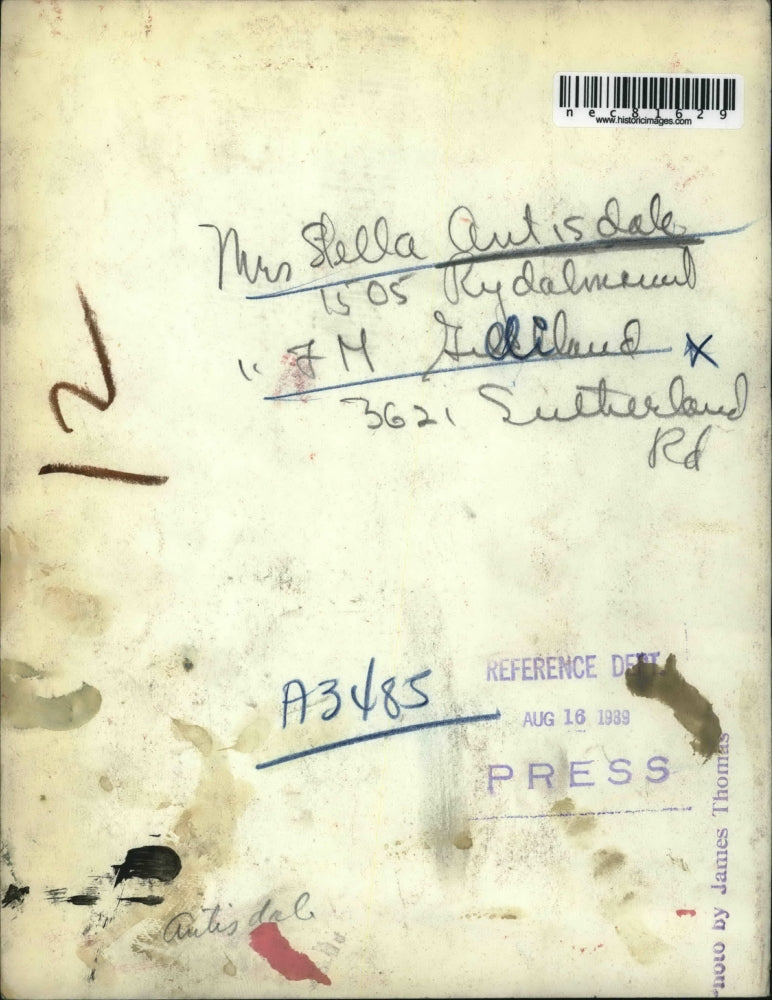 nec81629
www.historicimages.com
Mrs Stella Antisdale
1505 Rydalmount
" F M Gilliland X
3621 Sutherland
Rd
12
A3485
REFERENCE DEPT.
AUG 16 1939
PRESS
Photo by James Thomas
Antisdale